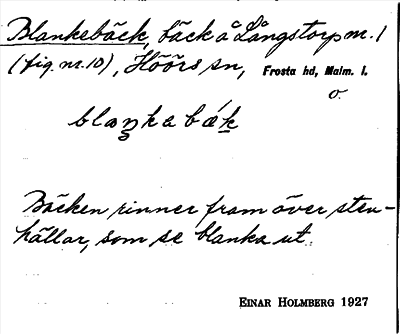 Blankebäck, bäck å Långstorp nr. 1
(fig. nr. 10), Höörs sn, Frosta hd, Malm. l.
o.
blaŋka bæk
Bäcken rinner fram över sten-
hällar, som se blanka ut.
EINAR HOLMBERG 1927